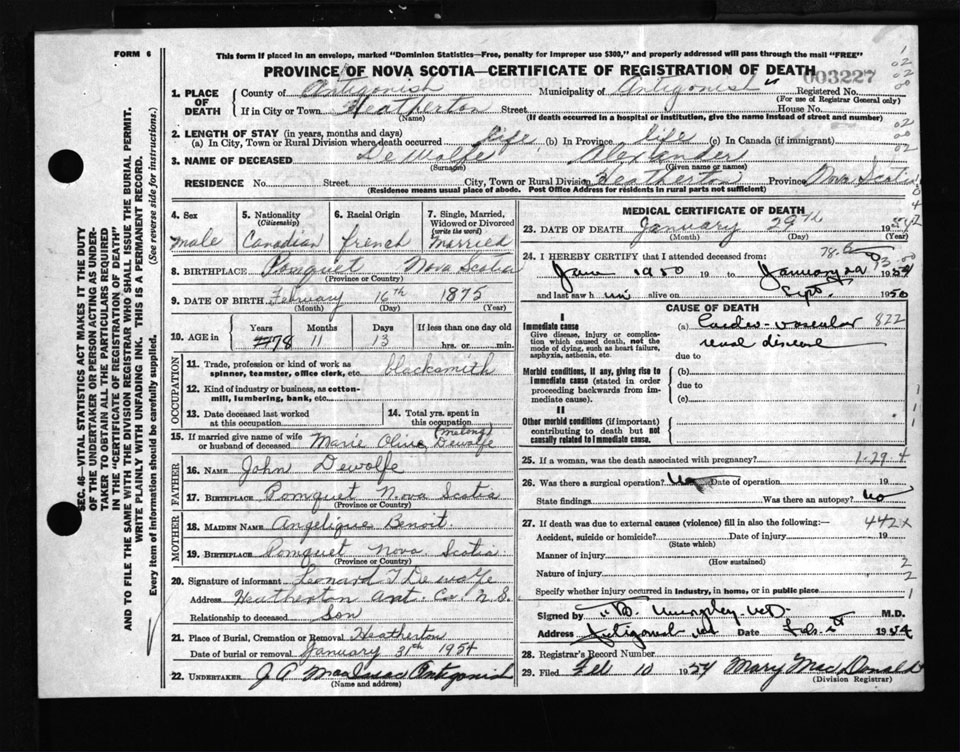 FORM 6
This form if placed in an envelope, marked "Dominion Statistics—Free, penalty for improper use $300," and properly addressed will pass through the mail "FREE"
PROVINCE OF NOVA SCOTIA—CERTIFICATE OF REGISTRATION OF DEATH
003227
1. PLACE OF DEATH County of Antigonish Municipality of Antigonish Registered No.
(For use of Registrar General only)
If in City or Town Heatherton Street House No.
(Name) (If death occurred in a hospital or institution, give the name instead of street and number)
2. LENGTH OF STAY (in years, months and days)
(a) In City, Town or Rural Division where death occurred Life (b) In Province life (c) In Canada (if immigrant)
3. NAME OF DECEASED De Wolfe Alexander
(Surname) (Given name or names)
RESIDENCE No. Street City, Town or Rural Division Heatherton Province Nova Scotia
(Residence means usual place of abode. Post Office Address for Residents in rural parts not sufficient)
4. Sex 5. Nationality (Citizenship) 6. Racial Origin 7. Single, Married, Widowed or Divorced (write the word)
male Canadian french Married
8. BIRTHPLACE Pomquet Nova Scotia
(Province or Country)
9. DATE OF BIRTH February 16th 1875
(Month) (Day) (Year)
10. AGE in Years Months Days If less than one day old
78 11 13 hrs. or min.
OCCUPATION
11. Trade, profession or kind of work as spinner, teamster, office clerk, etc. blacksmith
12. Kind of industry or business, as cotton-mill, lumbering, bank, etc.
13. Date deceased last worked at this occupation
14. Total yrs. spent in this occupation
15. If married give name of wife or husband of deceased Marie Olive (melong) Dewolfe
FATHER
16. NAME John Dewolfe
17. BIRTHPLACE Pomquet Nova Scotia
(Province or Country)
MOTHER
18. MAIDEN NAME Angelique Benoit
19. BIRTHPLACE Pomquet Nova Scotia
(Province or Country)
20. Signature of informant Leonard J Dewolfe
Address Heatherton Ant. Co. N.S.
Relationship to deceased Son
21. Place of Burial, Cremation or Removal Heatherton
Date of burial or removal January 31th 1954
22. UNDERTAKER J A MacIsaac Antigonish
(Name and address)
MEDICAL CERTIFICATE OF DEATH
23. DATE OF DEATH January 29th 1954
(Month) (Day) (Year)
24. I HEREBY CERTIFY that I attended deceased from:
June 1950 19 to January 29 1954
and last saw him alive on Sept. 1950
CAUSE OF DEATH
I
Immediate cause
Give disease, injury or complication which caused death, not the mode of dying, such as heart failure, asphyxia, asthenia, etc.
(a) Cardio-vascular 822
renal disease
due to
Morbid conditions, if any, giving rise to immediate cause (stated in order proceeding backwards from immediate cause)
(b)
due to
(c)
II
Other morbid conditions (if important) contributing to death but not causally related to immediate cause.
25. If a woman, was the death associated with pregnancy? 1-29-4
26. Was there a surgical operation? No Date of operation 19
State findings Was there an autopsy? No
27. If death was due to external causes (violence) fill in also the following:— 442x
Accident, suicide or homicide? Date of injury 19
(State which)
Manner of injury
(How sustained)
Nature of injury
Specify whether injury occurred in industry, in home, or in public place
Signed by M.D.
Address Antigonish NS Date Feb. 1st 1954
28. Registrar's Record Number
29. Filed Feb 10 1954 Mary MacDonald
(Division Registrar)
SEC. 46—VITAL STATISTICS ACT MAKES IT THE DUTY
OF THE UNDERTAKER OR PERSON ACTING AS UNDER-
TAKER TO OBTAIN ALL THE PARTICULARS REQUIRED
IN THE "CERTIFICATE OF REGISTRATION OF DEATH"
AND TO FILE THE SAME WITH THE DIVISION REGISTRAR WHO SHALL ISSUE THE BURIAL PERMIT.
WRITE PLAINLY WITH UNFADING INK. THIS IS A PERMANENT RECORD.
Every item of Information should be carefully supplied. (See reverse side for instructions.)